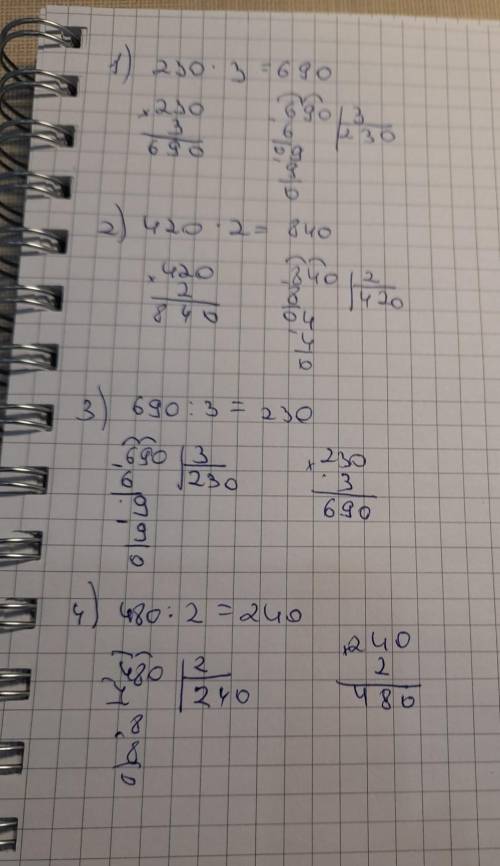 1) 230 · 3 = 690
× 230
3
690
- 690 | 3
6 230
- 9
9
0
2) 420 · 2 = 840
× 420
2
840
- 840 | 2
8 420
0 4
- 4
0
3) 690 : 3 = 230
- 690 | 3
6 230
- 9
9
0
× 230
3
690
4) 480 : 2 = 240
- 480 | 2
4 240
- 8
8
0
× 240
2
480